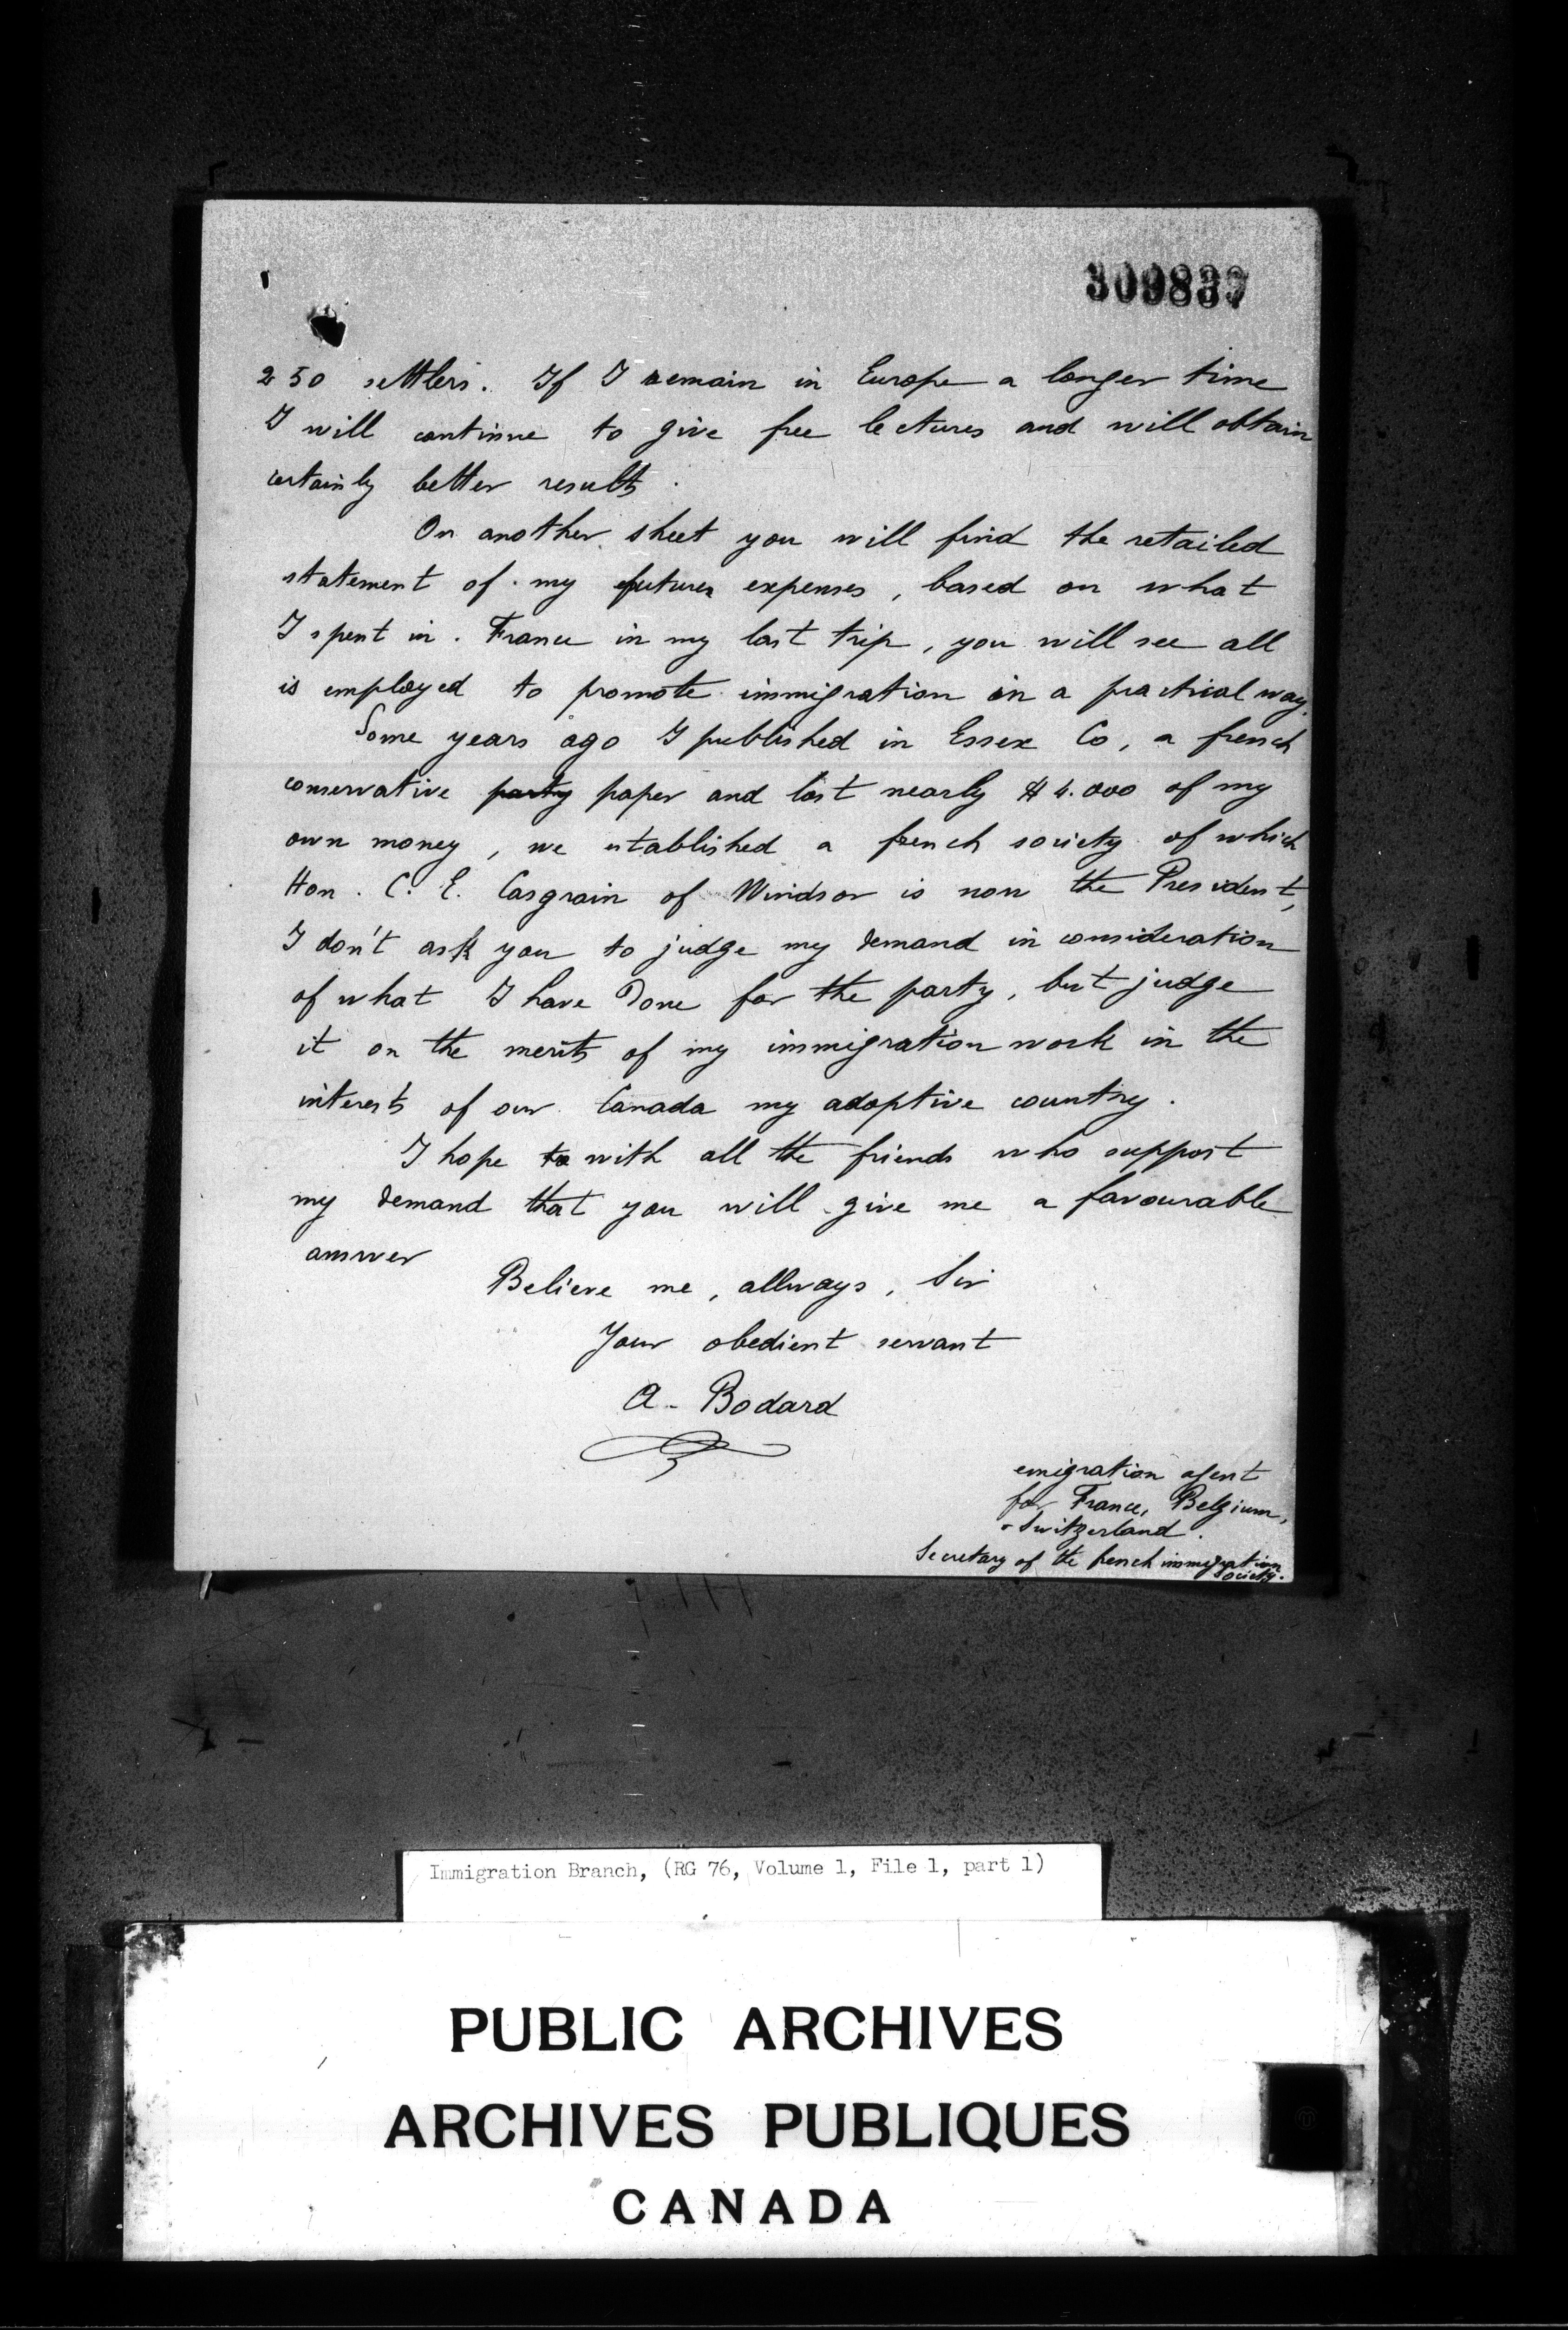 309837
250 settlers. If I remain in Europe a longer time
I will continue to give free lectures and will obtain
certainly better results.
On another sheet you will find the retailed
statement of my future expenses, based on what
I spent in France in my last trip, you will see all
is employed to promote immigration in a practical way.
Some years ago I published in Essex Co, a french
conservative party paper and lost nearly $4.000 of my
own money, we established a french society of which
Hon. C. E. Casgrain of Windsor is now the President,
I don't ask you to judge my demand in consideration
of what I have Done for the party, but judge
it on the merits of my immigration work in the
interests of our Canada my adoptive country.
I hope to with all the friends who support
my demand that you will give me a favourable
answer
Believe me, allways, Sir
Your obedient servant
A. Bodard
emigration agent
for France, Belgium,
& Switzerland.
Secretary of the french immigration
society.
Immigration Branch, (RG 76, Volume 1, File 1, part 1)
PUBLIC ARCHIVES
ARCHIVES PUBLIQUES
CANADA